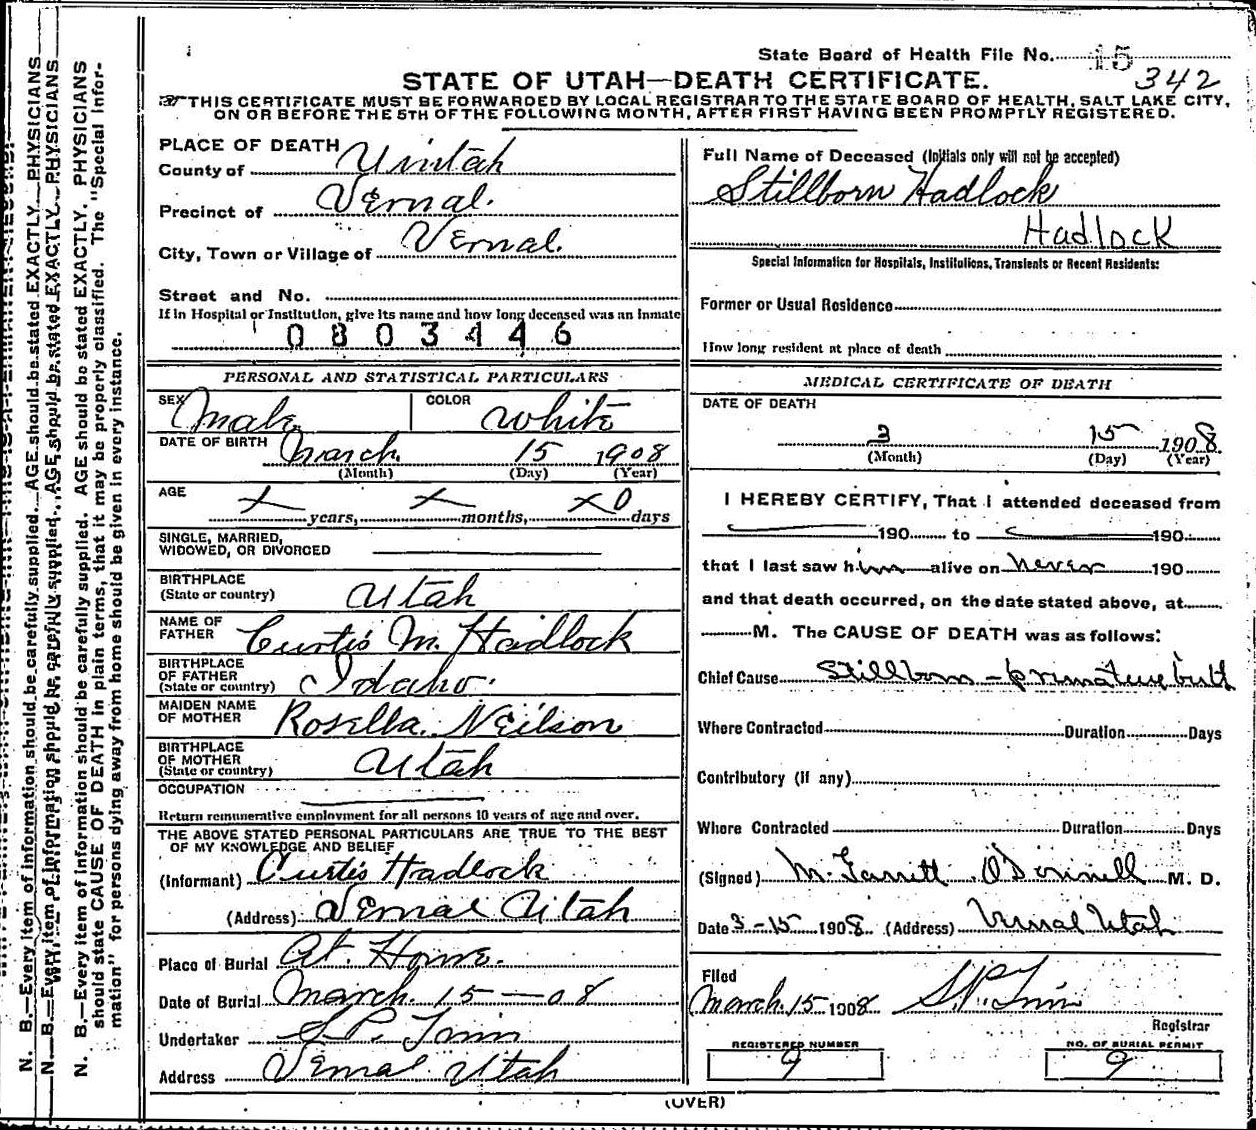 State Board of Health File No. 15
342
STATE OF UTAH—DEATH CERTIFICATE.
THIS CERTIFICATE MUST BE FORWARDED BY LOCAL REGISTRAR TO THE STATE BOARD OF HEALTH, SALT LAKE CITY,
ON OR BEFORE THE 5TH OF THE FOLLOWING MONTH, AFTER FIRST HAVING BEEN PROMPTLY REGISTERED.
PLACE OF DEATH
County of Uintah
Precinct of Vernal.
City, Town or Village of Vernal.
Street and No.
If in Hospital or Institution, give its name and how long deceased was an inmate
0803446
PERSONAL AND STATISTICAL PARTICULARS
SEX Male COLOR White
DATE OF BIRTH March 15 1908
(Month) (Day) (Year)
AGE x years, x months, x0 days
SINGLE, MARRIED,
WIDOWED, OR DIVORCED
BIRTHPLACE
(State or country) Utah
NAME OF
FATHER Curtis M. Hadlock
BIRTHPLACE
OF FATHER
(State or country) Idaho.
MAIDEN NAME
OF MOTHER Rosella Neilson
BIRTHPLACE
OF MOTHER
(State or country) Utah
OCCUPATION
Return remunerative employment for all persons 10 years of age and over.
THE ABOVE STATED PERSONAL PARTICULARS ARE TRUE TO THE BEST
OF MY KNOWLEDGE AND BELIEF
(Informant) Curtis Hadlock
(Address) Vernal Utah
Place of Burial At Home.
Date of Burial March. 15 — 08
Undertaker S.P. Trim
Address Vernal Utah
Full Name of Deceased (Initials only will not be accepted)
Stillborn Hadlock
Hadlock
Special Information for Hospitals, Institutions, Transients or Recent Residents:
Former or Usual Residence
How long resident at place of death
MEDICAL CERTIFICATE OF DEATH
DATE OF DEATH
3 15 1908
(Month) (Day) (Year)
I HEREBY CERTIFY, That I attended deceased from
190 to 190
that I last saw him alive on never 190
and that death occurred, on the date stated above, at
M. The CAUSE OF DEATH was as follows:
Chief Cause Stillborn – premature birth
Where Contracted Duration Days
Contributory (if any)
Where Contracted Duration Days
(Signed) M. Garrett O'Donnell M. D.
Date 3-15 1908 (Address) Vernal Utah
Filed
March 15 1908 S.P. Trim
Registrar
REGISTERED NUMBER
9
NO. OF BURIAL PERMIT
9
(OVER)
N. B.—Every item of information should be carefully supplied. AGE should be stated EXACTLY. PHYSICIANS
N. B.—Every item of information should be carefully supplied. AGE should be stated EXACTLY. PHYSICIANS
N. B.—Every item of information should be carefully supplied. AGE should be stated EXACTLY. PHYSICIANS
should state CAUSE OF DEATH in plain terms, that it may be properly classified. The "Special Infor-
mation" for persons dying away from home should be given in every instance.